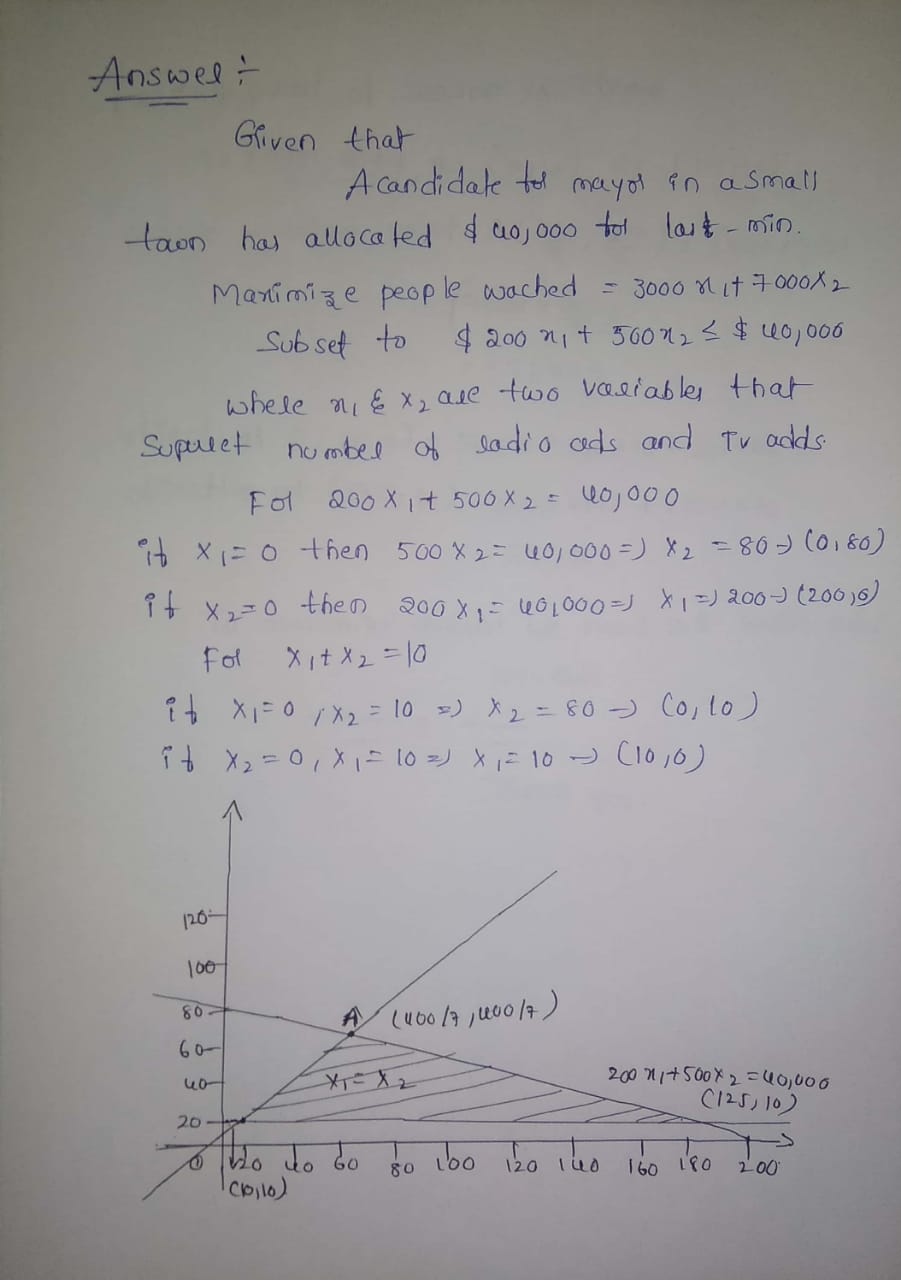 Answer :-
Given that
A candidate for mayor in a small
town has allocated $ 40,000 for last - min.
Maximize people wached = 3000 x1 + 7000 X2
Subset to $ 200 x1 + 500 x2 ≤ $ 40,000
where x1 & X2 are two variables that
number of radio ads and TV adds.
For 200 X1 + 500 X2 = 40,000
if X1 = 0 then 500 X2 = 40,000 => X2 = 80 → (0,80)
if X2 = 0 then 200 X1 = 40,000 => X1 => 200 → (200,0)
For X1 + X2 = 10
if X1 = 0 , X2 = 10 => X2 = 80 → (0,10)
if X2 = 0 , X1 = 10 => X1 = 10 → (10,0)
120
100
80
A (400/7, 400/7)
60
40
X1 = X2
200 x1 + 500 X2 = 40,000
(125, 10)
20
0 20 40 60 80 100 120 140 160 180 200
(10,10)